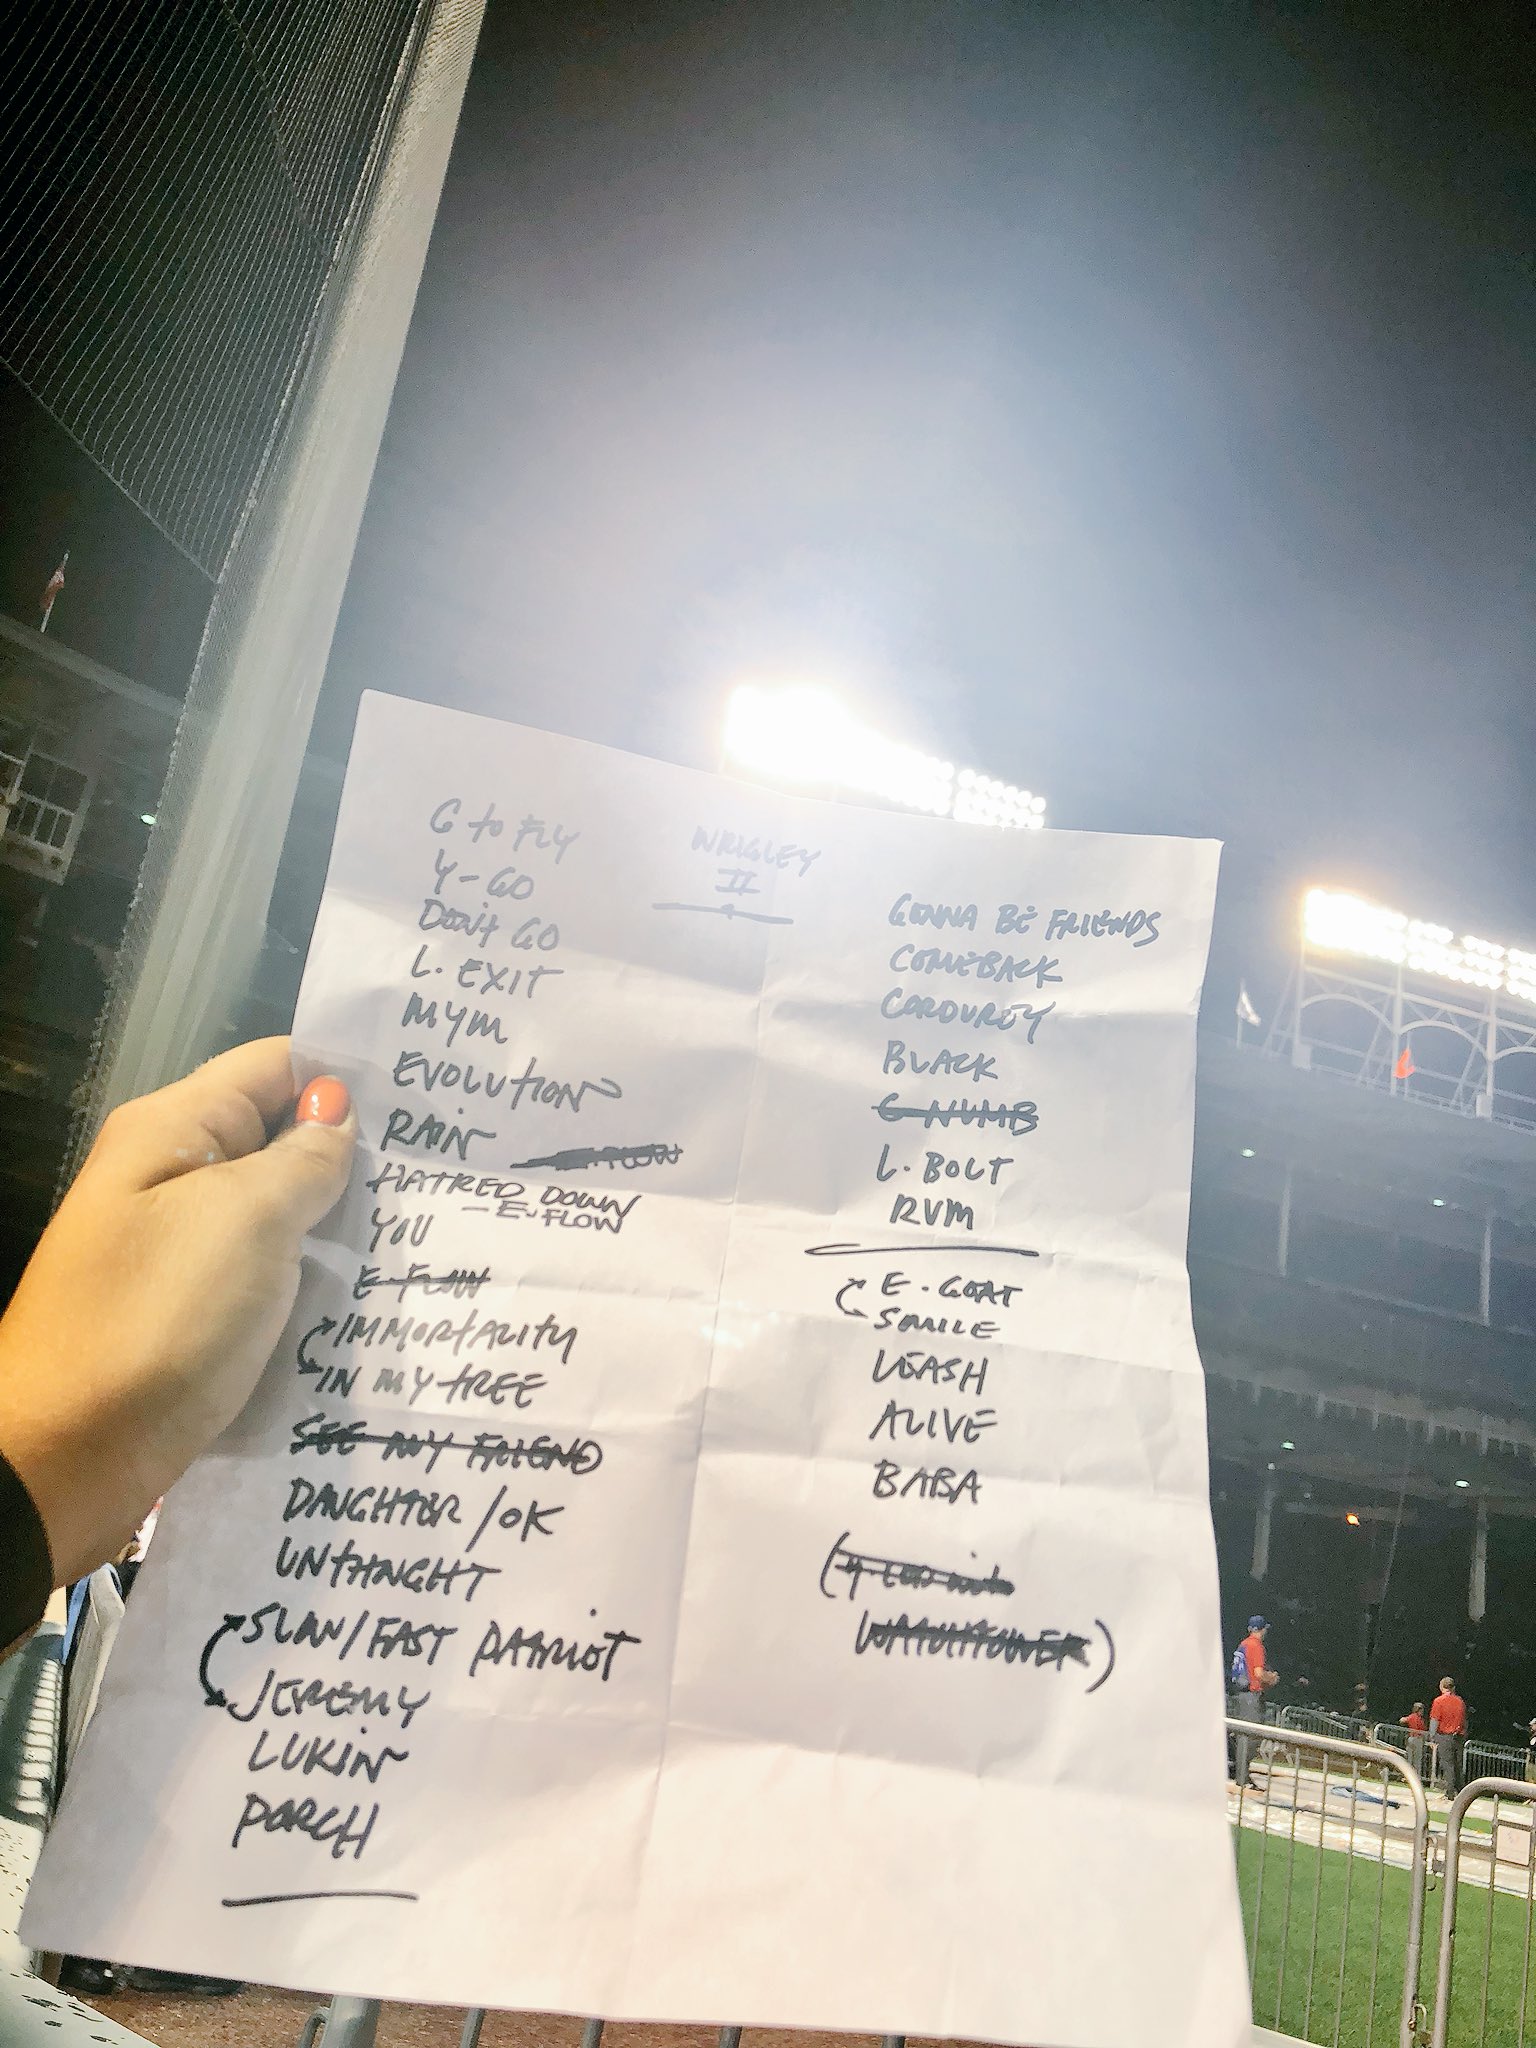 WRIGLEY
II
G to FLY
Y-GO
Don't GO
L. EXIT
MYM
EVOLUTION
RAIN
HATRED DOWN
- E. FLOW
YOU
E. FLOW
IMMORTALITY
IN MY TREE
SEE MY FRIEND
DAUGHTER/OK
UNTHNGHT
SLOW/FAST PATRIOT
JEREMY
LUKIN
PORCH
GONNA BE FRIENDS
COMEBACK
CORDUROY
BLACK
C NUMB
L. BOLT
RVM
E. GOAT
SMILE
LEASH
ALIVE
BABA
(
WATCHTOWER)